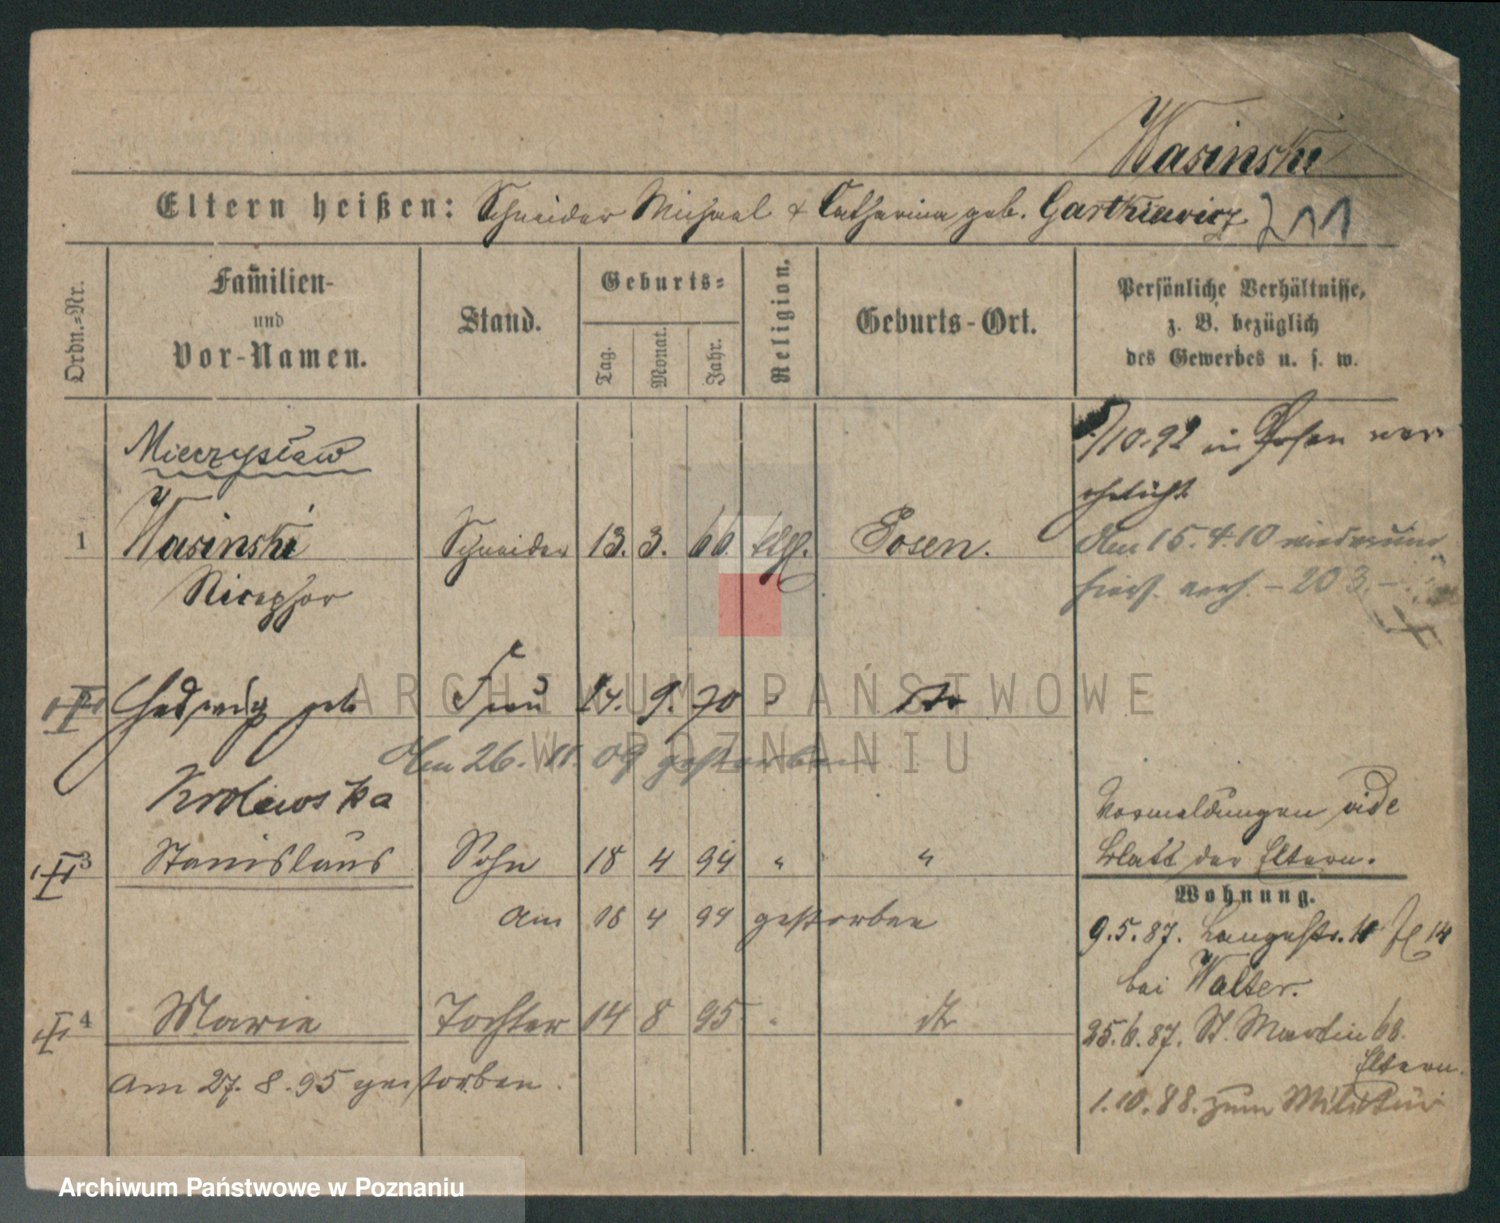 Wasinski
Eltern heißen: Schneider Michael & Catharina geb. Gartkiewicz 211
Ordn.-Nr.
Familien-
und
Vor-Namen.
Stand.
Geburts-
Tag.
Monat.
Jahr.
Religion.
Geburts-Ort.
Persönliche Verhältnisse,
z. B. bezüglich
des Gewerbes u. s. w.
Mieczysław
/10.92 in Posen ver
ehelicht
1 Wasinski Schneider 13. 3. 66 kth. Posen.
Nicephor
den 15.4.10 wiederum
hier verh. – 203. –
II Hedwig geb Frau 14. 9. 70 " do
den 26. 11. 09 gestorben
Krolewska
Vormeldungen vide
Blatt der Eltern.
3 Stanislaus Sohn 18 4 94 " "
am 18 4 94 gestorben
Wohnung.
9.5.87. Langestr. 11 14
bei Walter.
4 Marie Tochter 14 8 95 " do
am 27.8.95 gestorben.
25.6.87. St. Martin 60.
Eltern.
1.10.88. zum Militär
ARCHIWUM PAŃSTWOWE
W POZNANIU
Archiwum Państwowe w Poznaniu